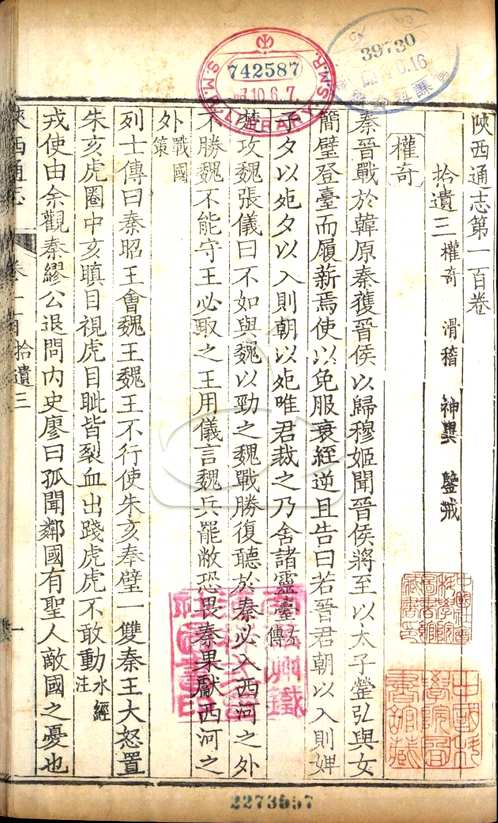 陝西通志第一百卷
拾遺三 權奇 滑稽 神異 鑒戒
權奇
秦晉戰於韓原秦獲晉侯以歸穆姬聞晉侯將至以太子罃弘與女
簡璧登臺而履薪焉使以免服衰絰逆且告曰若晉君朝以入則婢
子夕以死夕以入則朝以死唯君裁之乃舍諸靈臺左傳
攻魏張儀曰不如與魏以勁之魏戰勝復聽於秦必入西河之外
不勝魏不能守王必取之王用儀言魏兵罷敝恐畏秦果獻西河之
外戰國策
列士傳曰秦昭王會魏王魏王不行使朱亥奉璧一雙秦王大怒置
朱亥虎圈中亥瞋目視虎目眦皆裂血出踐虎虎不敢動水經注
戎使由余觀秦繆公退問内史廖曰孤聞鄰國有聖人敵國之憂也
陝西通志
拾遺三
一
742587
10.6.7
S.M.R. LIBRARY
39730
2273657